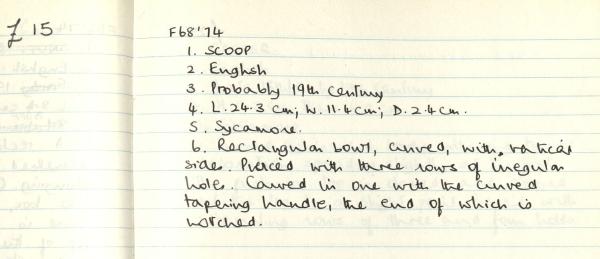 £ 15
F68'74
1. SCOOP
2. English
3. Probably 19th century
4. L. 24.3 cm; W. 11.4 cm; D. 2.4 cm.
5. Sycamore.
6. Rectangular bowl, curved, with vertical
sides. Pierced with three rows of irregular
holes. Carved in one with the curved
tapering handle, the end of which is
notched.